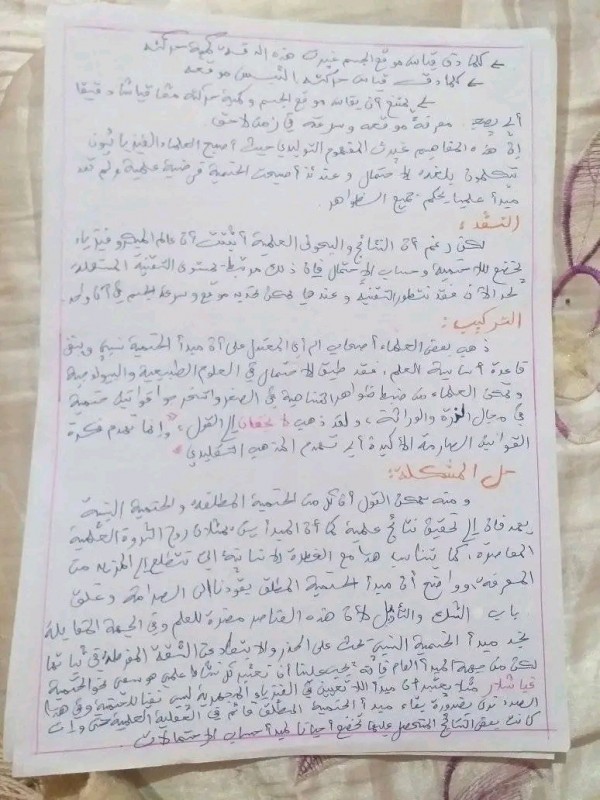 ← كلما دق قياس موقع الجسم غيرت هذه الدقة كمية حركته
← كلما دق قياس حركته التبس موقعه
← يمتنع أن يقاس موقع الجسم وكمية حركته معا قياسا دقيقا
أي يصعب معرفة موقعه وسرعته في زمن لاحق
إن هذه المفاهيم غيرت المفهوم التوليدي حيث أصبح العلماء الفيزيائيون
يتكلمون بلغة الاحتمال وعندئذ أصبحت الحتمية فرضية علمية ولم تعد
مبدأ علميا يحكم جميع الظواهر.
النقد:
لكن رغم أن النتائج والبحوث العلمية أثبتت أن عالم الميكروفيزياء
يخضع للاحتمية وحساب الاحتمال فإن ذلك مرتبط بمستوى التقنية المستعملة
لحد الآن فقد تتطور التقنية وعندها يمكن تحديد موقع وسرعة الجسم في آن واحد.
التركيب:
ذهب بعض العلماء أصحاب الرأي المعتدل على أن مبدأ الحتمية نسبي ويبقى
قاعدة أساسية للعلم، فقد طبق الاحتمال في العلوم الطبيعية والبيولوجية
وتمكن العلماء من ضبط ظواهر متناهية في الصغر واستخرجوا قوانين حتمية
في مجال الذرة والوراثة، ولقد ذهب لانجفان إلى القول "وإنما تهدم فكرة
القوانين الصارمة الأكيدة أي تهدم المذهب التقليدي"
حل المشكلة:
ومنه يمكن القول أن كل من الحتمية المطلقة والحتمية النسبية
يهدفان إلى تحقيق نتائج علمية كما أن المبدأين يمثلان روح الثورة العلمية
المعاصرة، كما يتناسب هذا مع الفطرة الإنسانية التي تتطلع إلى المزيد من
المعرفة، وواضح أن مبدأ الحتمية المطلق يقودنا إلى الصرامة وغلق
باب الشك والتأويل لأن هذه العناصر مضرة للعلم وفي الجهة المقابلة
نجد مبدأ الحتمية النسبي يحث على الحذر والابتعاد عن الثقة المفرطة في ثباتها
لكن من جهة المبدأ العام فإنه يجب علينا أن نعتبر كل نشاط علمي هو سعي نحو الحتمية
فباشلار مثلا يعتبر أن مبدأ اللاتعيين في الفيزياء المجهرية ليس نفيا للحتمية وفي هذا
الصدد نرى بضرورة بقاء مبدأ الحتمية المطلق قائم في العقلية العلمية حتى وإن
كانت بعض النتائج المتحصل عليها تخضع أحيانا لمبدأ حساب الاحتمالات